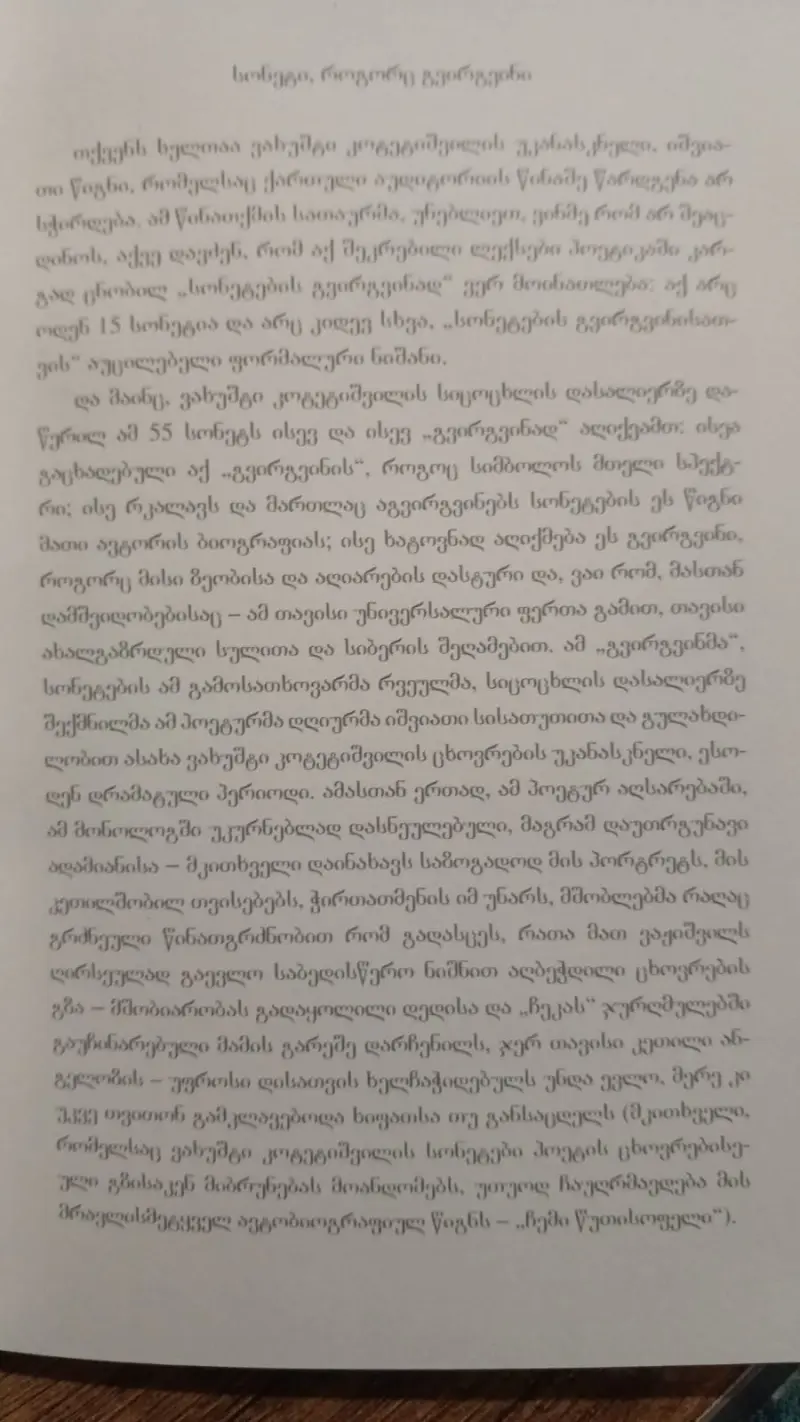 სონეტი, როგორც გვირგვინი
თქვენს ხელთაა ვახუშტი კოტეტიშვილის უკანასკნელი, იშვია-
თი წიგნი, რომელსაც ქართული აუდიტორიის წინაშე წარდგენა არ
სჭირდება. ამ წინათქმის სათაურმა, უნებლიეთ, ვინმე რომ არ შეაც-
დინოს, აქვე დავძენ, რომ აქ შეკრებილი ლექსები პოეტიკაში კარ-
გად ცნობილ „სონეტების გვირგვინად“ ვერ მოინათლება: აქ არც
ოდენ 15 სონეტია და არც კიდევ სხვა, „სონეტების გვირგვინისათ-
ვის“ აუცილებელი ფორმალური ნიშანი.
და მაინც, ვახუშტი კოტეტიშვილის სიცოცხლის დასალიერზე და-
წერილ ამ 55 სონეტს ისევ და ისევ „გვირგვინად“ აღიქვამთ: ისეა
გაცხადებული აქ „გვირგვინის“, როგოც სიმბოლოს მთელი სპექტ-
რი; ისე რკალავს და მართლაც აგვირგვინებს სონეტების ეს წიგნი
მათი ავტორის ბიოგრაფიას; ისე ხატოვნად აღიქმება ეს გვირგვინი,
როგორც მისი ზეობისა და აღიარების დასტური და, ვაი რომ, მასთან
დამშვიდობებისაც – ამ თავისი უნივერსალური ფერთა გამით, თავისი
ახალგაზრდული სულითა და სიბერის შეღამებით. ამ „გვირგვინმა“,
სონეტების ამ გამოსათხოვარმა რვეულმა, სიცოცხლის დასალიერზე
შექმნილმა ამ პოეტურმა დღიურმა იშვიათი სისათუთითა და გულახდი-
ლობით ასახა ვახუშტი კოტეტიშვილის ცხოვრების უკანასკნელი, ესო-
დენ დრამატული პერიოდი. ამასთან ერთად, ამ პოეტურ აღსარებაში,
ამ მონოლოგში უკურნებლად დასნეულებული, მაგრამ დაუთრგუნავი
ადამიანისა – მკითხველი დაინახავს საზოგადოდ მის პორტრეტს, მის
კეთილშობილ თვისებებს, ჭირთათმენის იმ უნარს, მშობლებმა რაღაც
გრძნეული წინათგრძნობით რომ გადასცეს, რათა მათ ვაჟიშვილს
ღირსეულად გაევლო საბედისწერო ნიშნით აღბეჭდილი ცხოვრების
გზა – მშობიარობას გადაყოლილი დედისა და „ჩეკას“ ჯურღმულებში
გაუჩინარებული მამის გარეშე დარჩენილს, ჯერ თავისი კეთილი ან-
გელოზის – უფროსი დისათვის ხელჩაჭიდებულს უნდა ევლო, მერე კი
უკვე თვითონ გამკლავებოდა ხიფათსა თუ განსაცდელს (მკითხველი,
რომელსაც ვახუშტი კოტეტიშვილის სონეტები პოეტის ცხოვრებისე-
ული გზისაკენ მიბრუნებას მოანდომებს, უთუოდ ჩაუღრმავდება მის
მრავლისმეტყველ ავტობიოგრაფიულ წიგნს – „ჩემი წუთისოფელი“).